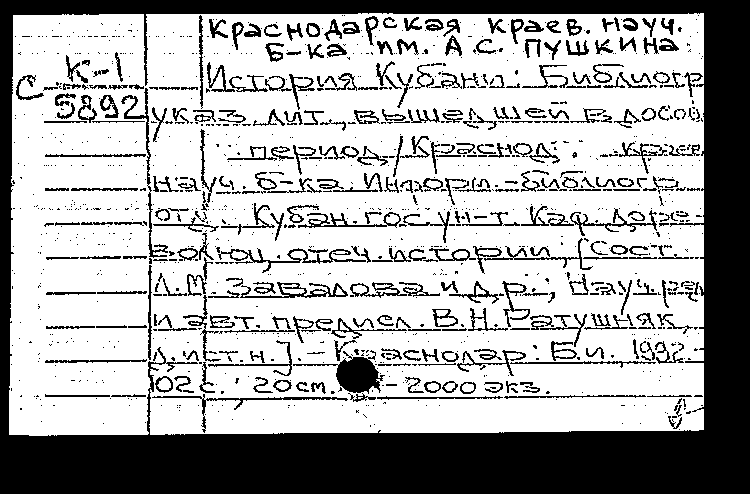 Краснодарская краев. науч.
б-ка им. А.С. Пушкина
К-1
С
5892
История Кубани: Библиогр
указ. лит., вышедшей в досов
период / Краснод. краев.
науч. б-ка. Информ.-библиогр.
отд., Кубан. гос. ун-т. Каф. доре-
волюц. отеч. истории; [Сост.
Л.М. Завалова и др.; Науч. ред
и авт. предисл. В.Н. Ратушняк,
д. ист. н.]. - Краснодар: Б.и., 1992.-
102 с.; 20 см. - 2000 экз.